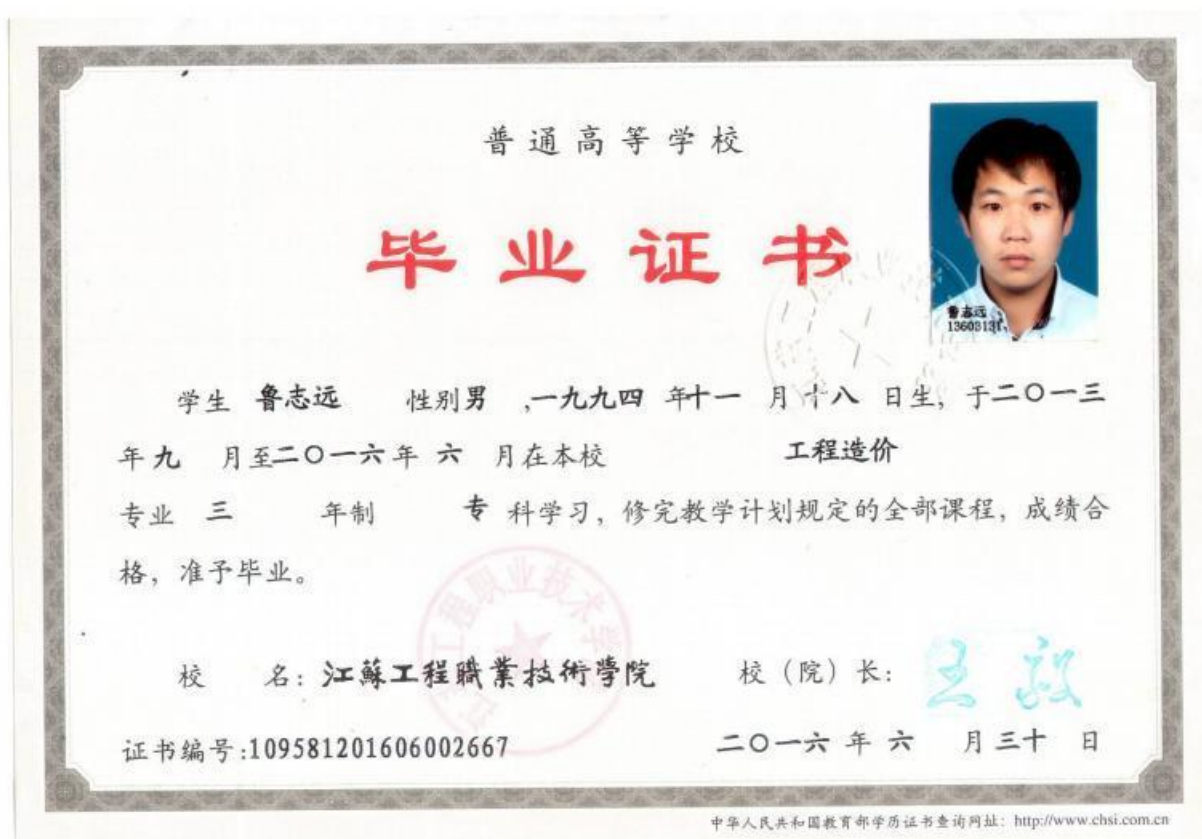 普通高等学校
毕业证书
鲁志远
13603131
学生 鲁志远 性别男 ,一九九四 年十一 月十八 日生，于二〇一三
年九 月至二〇一六年 六 月在本校 工程造价
专业 三 年制 专 科学习，修完教学计划规定的全部课程，成绩合
格，准予毕业。
校 名：江蘇工程職業技術學院 校（院）长：
证书编号:109581201606002667 二〇一六 年 六 月三十 日
中华人民共和国教育部学历证书查询网址：http://www.chsi.com.cn